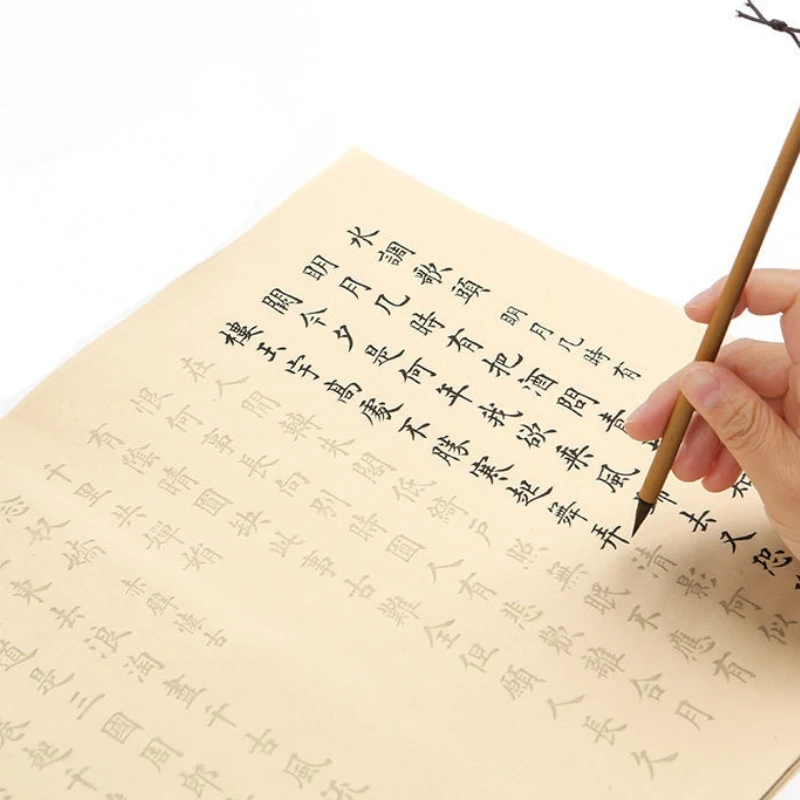 水調歌頭 明月几時有
明月几時有把酒問青
闕今夕是何年我欲乘風去又恐
樓玉宇高處不勝寒起舞弄清影何似
在人間轉朱閣低綺戶照無眠不應有
恨何事長向別時圓人有悲歡離合月
有陰晴圓缺此事古難全但願人長久
千里共嬋娟
念奴嬌 赤壁懷古
東去浪淘盡千古風流
道是三國周郎
卷起千